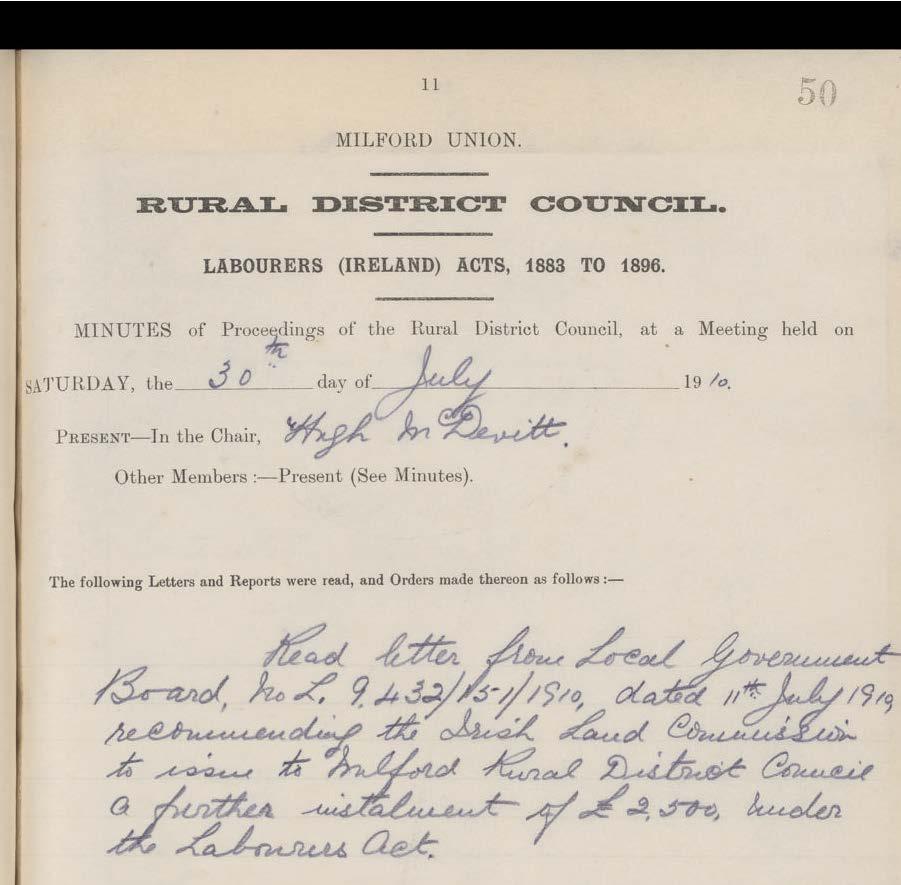 11
50
MILFORD UNION.
RURAL DISTRICT COUNCIL.
LABOURERS (IRELAND) ACTS, 1883 TO 1896.
MINUTES of Proceedings of the Rural District Council, at a Meeting held on
SATURDAY, the 30th day of July 1910.
PRESENT—In the Chair, Hugh McDevitt.
Other Members :—Present (See Minutes).
The following Letters and Reports were read, and Orders made thereon as follows :—
Read letter from Local Government
Board, No L. 9.432/151/1910, dated 11th July 1910,
recommending the Irish Land Commission
to issue to Milford Rural District Council
a further instalment of £2,500, under
the Labourers Act.